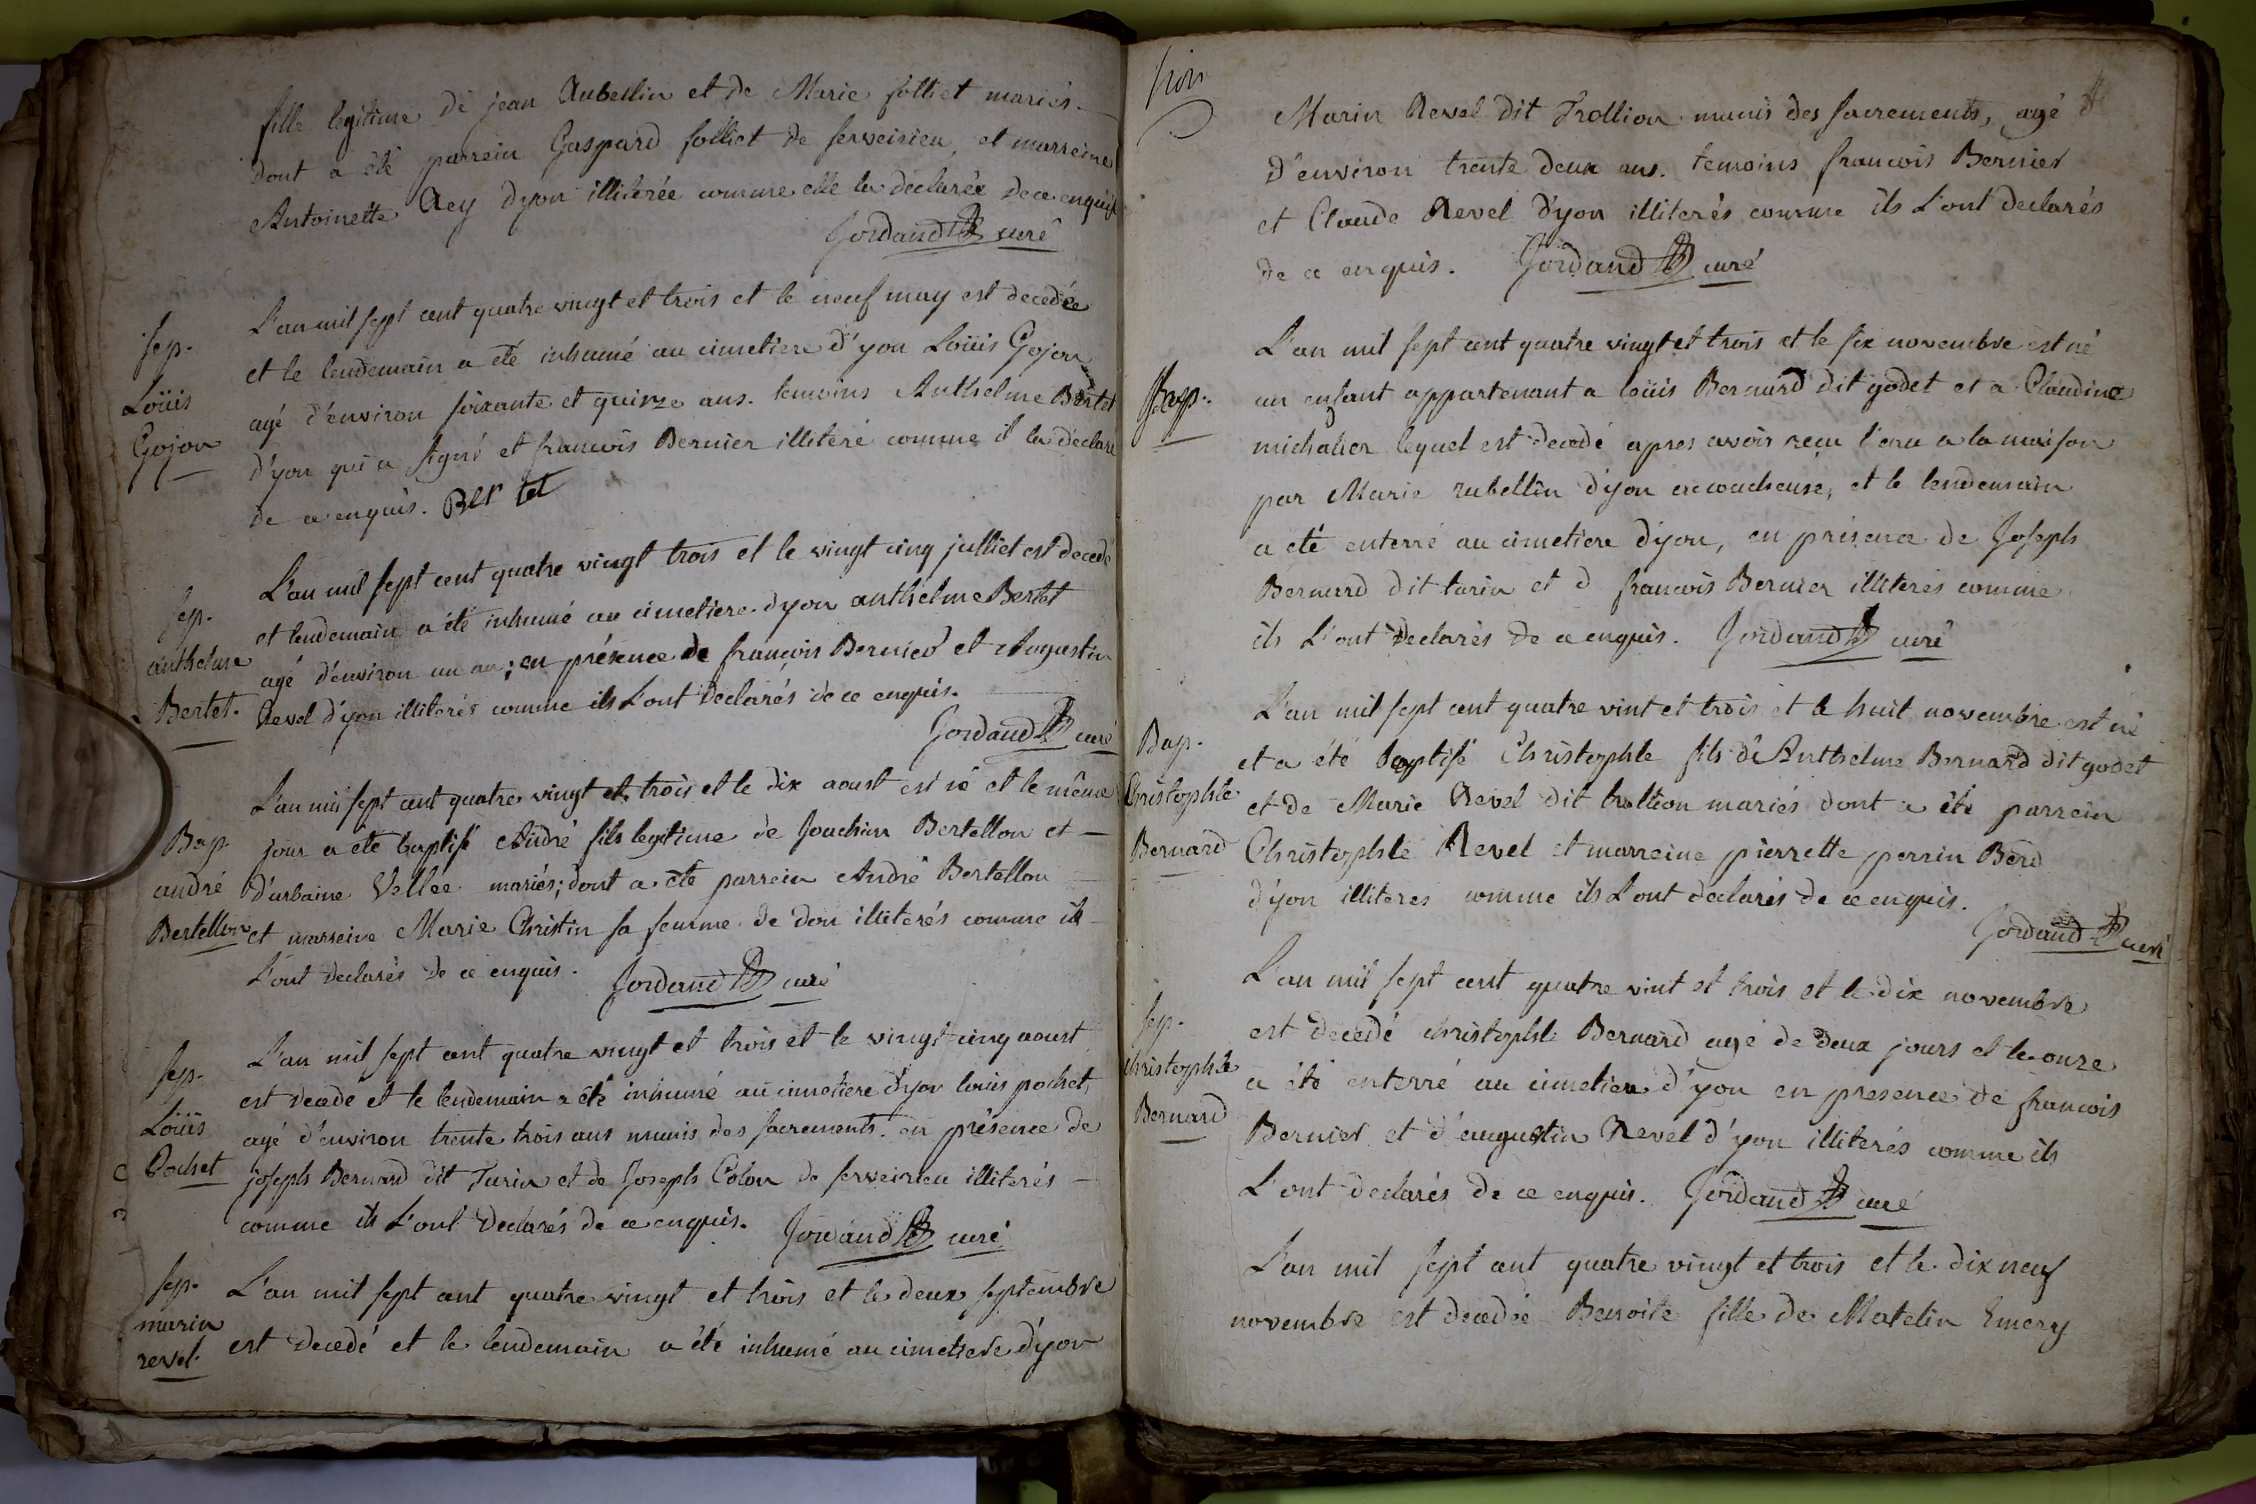 fille legitime de jean Rubellin et de Marie folliet mariés
dont a été parrein Gaspard folliet de serveirieu, et marreine
Antoinette Rey dyon illiterée comme elle la declarée de ce enquise
Jordand curé
L'an mil sept cent quatre vingt et trois et le neuf may est decedée
et le lendemain a été inhumé au cimetiere d'yon Loüis Gojon
agé d'environ soixante et quinze ans. temoins Anthelme Bertet
d'yon qui a signé et francois Bernier illiteré comme il la declaré
de ce enquis. Bertet
sep.
Loüis
Gojon
L'an mil sept cent quatre vingt trois et le vingt cinq julliet est decedé
et lendemain a été inhumé au cimetiere dyon anthelme Bertet
agé d'environ un an; en présence de francois Bernier et Augustin
Revel d'yon illiterés comme ils L'ont declarés de ce enquis.
Jordand curé
sep.
anthelme
Bertet.
L'an mil sept cent quatre vingt et trois et le dix aoust est né et le même
jour a été baptisé André fils legitime de Joachim Bertellon et
d'urbaine Vellée mariés; dont a été parrein André Bertellon
et marreine Marie Christin sa femme de don illiterés comme ils
L'ont declarés de ce enquis. Jordand curé
Bap.
andré
Bertellon
L'an mil sept cent quatre vingt et trois et le vingt cinq aoust
est decedé et le lendemain a été inhumé au cimetiere d'yon louis pochet,
agé d'environ trente trois ans munis des sacrements. en présence de
joseph Bernard dit Turin et de Joseph Colon de serveirieu illiterés
comme ils L'ont declarés de ce enquis. Jordand curé
sep.
Loüis
Pochet
L'an mil sept cent quatre vingt et trois et le deux septembre
est decedé et le lendemain a été inhumé au cimetiere d'yon
sep.
marin
revel.
Marin Revel dit Trollion munis des sacrements, agé
d'environ trente deux ans. temoins francois Bernier
et Claude Revel d'yon illiterés comme ils L'ont declarés
de ce enquis. Jordand curé
L'an mil sept cent quatre vingt et trois et le six novembre est né
un enfant appartenant a loüis Bernard dit godet et a Claudine
michalier lequel est decedé apres avoir reçu l'eau a la maison
par Marie rubellin d'yon accoucheuse, et le lendemain
a été enterré au cimetiere d'yon, en présence de Joseph
Bernard dit turin et d francois Bernier illiterés comme
ils L'ont declarés de ce enquis. Jordand curé
L'an mil sept cent quatre vint et trois et le huit novembre est né
et a été baptisé Christophle fils de Anthelme Bernard dit godet
et de Marie Revel dit trollion mariés dont a été parrein
Christophle Revel et marreine pierrette perrin Berd
d'yon illiteres comme ils L'ont declarés de ce enquis.
Jordand curé
Bap.
Christophle
Bernard
L'an mil sept cent quatre vint et trois et le dix novembre
est decedé christophle Bernard agé de deux jours et le onze
a été enterré au cimetiere d'yon en presence de francois
Bernier et d'augustin Revel d'yon illiterés comme ils
L'ont declarés de ce enquis. Jordand curé
sep.
christophle
Bernard
L'an mil sept cent quatre vingt et trois et le dix neuf
novembre est decedée Benoite fille de Matelin Emery